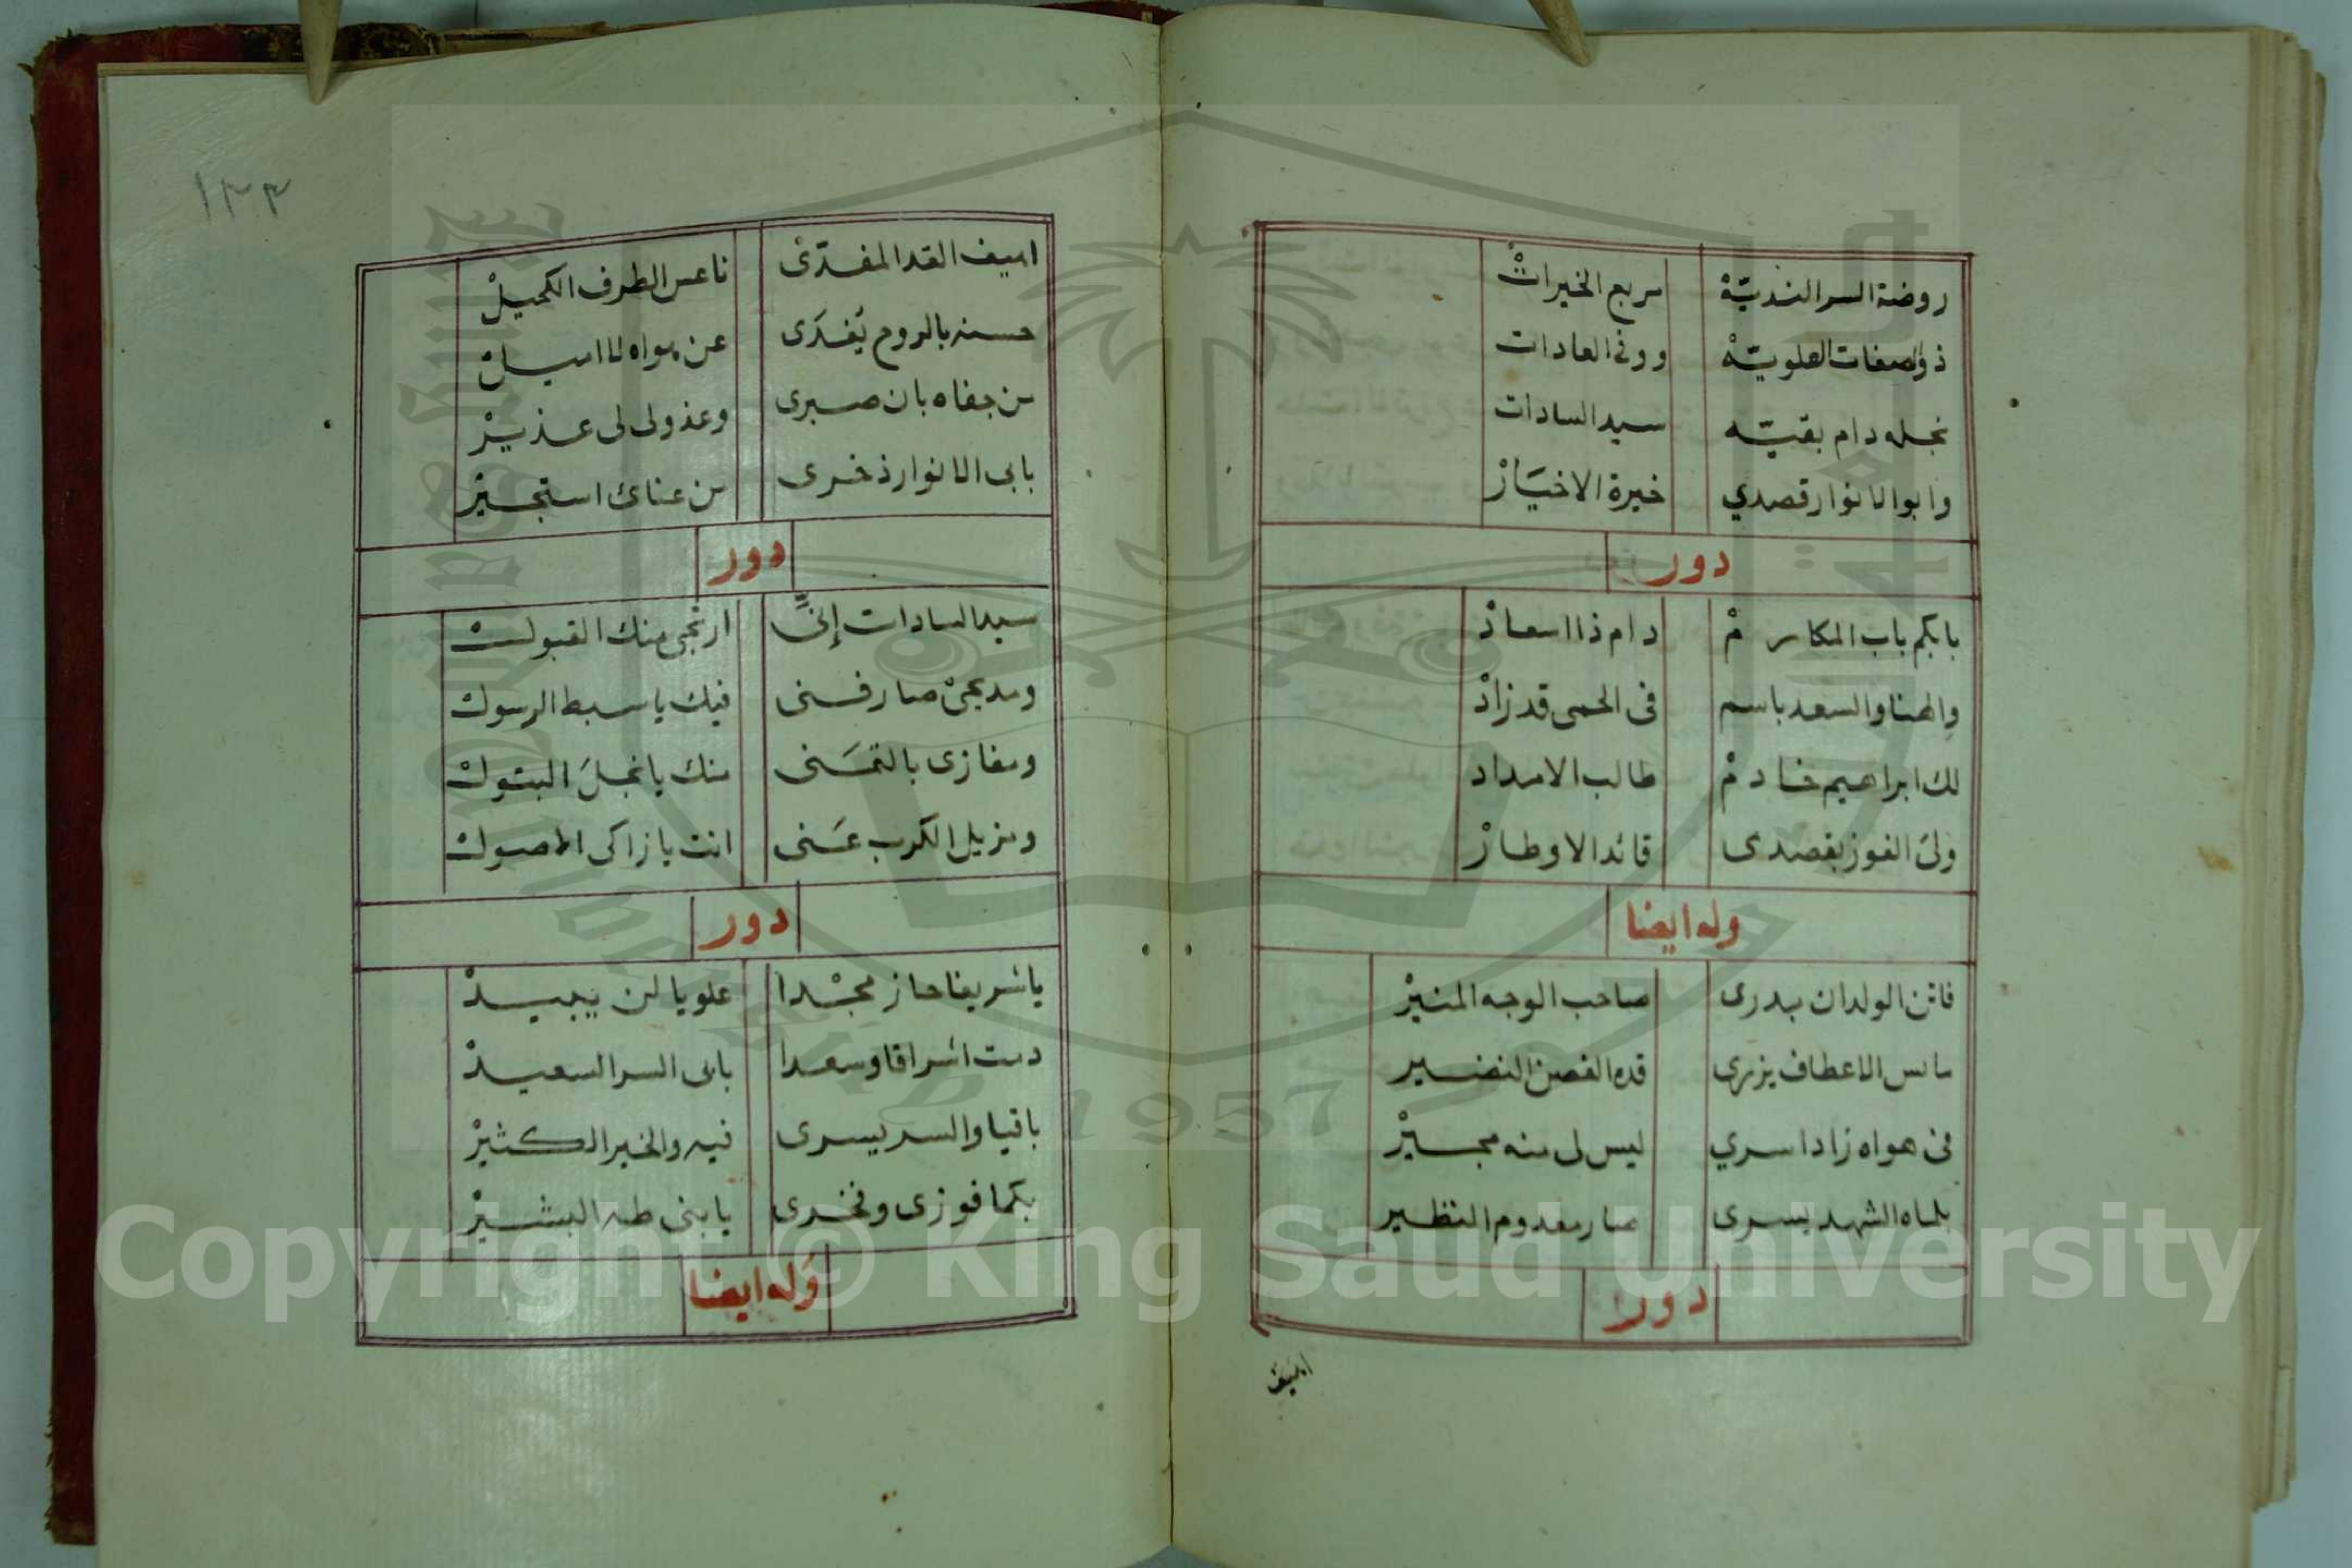 روضة السر النديّهْ مربع الخيراتْ
ذو الصفات العلويّهْ ووفى العادات
نجله دام بقيّه سيد السادات
وابو الانوار قصدي خيرة الاخيَارْ
دور
بابكم باب المكارمْ دام ذا اسعادْ
والهنا والسعد باسم فى الحمى قد زادْ
لك ابراهيم خادمْ طالب الامداد
ولىَ الفوز بقصدى قائد الاوطارْ
وله ايضا
فاتن الولدان بدرى صاحب الوجه المنيرْ
مائس الاعطاف يزرى قده الغصن النضير
فى هواه زاد اسري ليس لى منه مجيرْ
بلماه الشهد يسرى صار معدوم النظير
دور
اهيف
١٣٣
اهيف القد المفدّىْ ناعس الطرف الكحيلْ
حسنه بالروح يُفدَى عن هواه لا اميلْ
من جفاه بان صبرى وعذولى لى عذيرْ
بابى الانوار ذخرى من عناىَ استجيرْ
دور
سيد السادات إنىِّ ارتجى منك القبولْ
ومديحىْ صار فنى فيك يا سبط الرسولْ
ومفازى بالتمَنى منك يا نجلَ البتولْ
ومزيل الكرب عَنى انت يا زاكى الاصولْ
دور
يا شريفا حاز مجْدا علويا لن يبيدْ
دمت اشراقا وسعدا بابى السر السعيدْ
باقيا والسر يسرى فيه والخير الكثيرْ
بكما فوزى وفخرى يا بنى طه البشيرْ
وَله ايضا
Copyright © King Saud University
1957